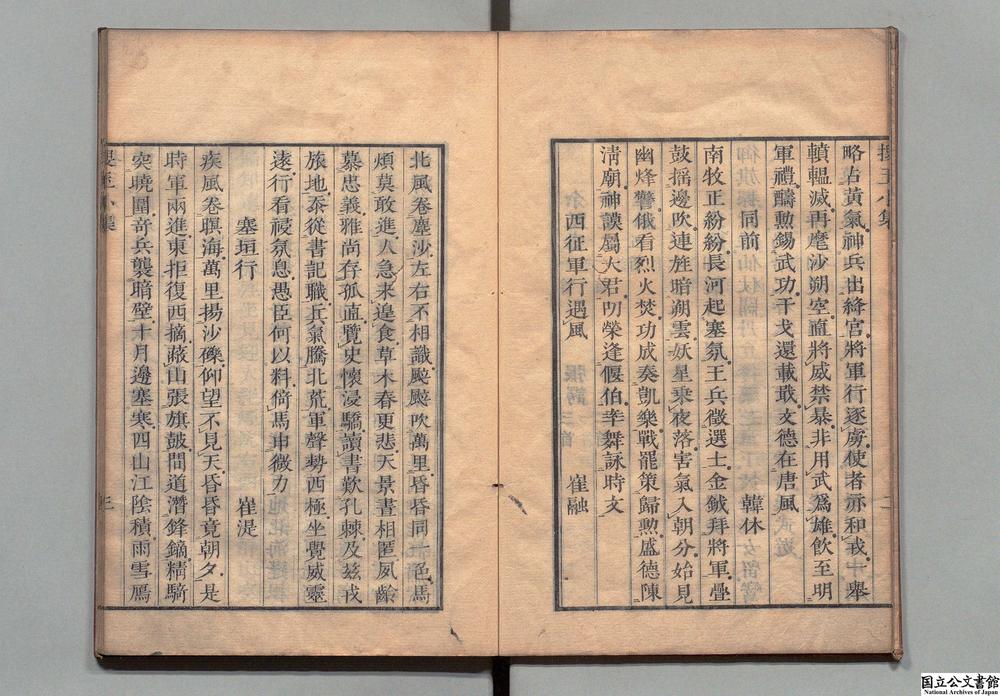 略占黃氣神兵出絳宮將軍行逐虜使者亦和戎一舉
轒轀滅再麾沙朔空直將威禁暴非用武爲雄飲至明
軍禮醻勲錫武功干戈還載戢文德在唐風
同前 韓休
南牧正紛紛長河起塞氛王兵徵選士金鉞拜將軍疊
鼓搖邊吹連旌暗朔雲妖星乘夜落害氣入朝分始見
幽烽警俄看烈火焚功成奏凱樂戰罷策歸勲盛德陳
淸廟神謨屬大君叨榮逢偃伯率舞詠時文
西征軍行遇風 崔融
北風卷塵沙左右不相識颴颴吹萬里昏昏同一色馬
煩莫敢進人急未遑食草木春更悲天景晝相匿夙齡
慕忠義雅尚存孤直覽史懷浸驕讀書歎孔棘及兹戎
旅地忝從書記職兵氣騰北荒軍聲勢西極坐覺威靈
遠行看祲氛息愚臣何以料倚馬申微力
塞垣行 崔湜
疾風卷暝海萬里揚沙礫仰望不見天昏昏竟朝夕是
時軍兩進東拒復西摘蔽山張旗鼓間道潛鋒鏑精騎
突曉圍奇兵襲暗壁十月邊塞寒四山江陰積雨雪鴈
国立公文書館
National Archives of Japan